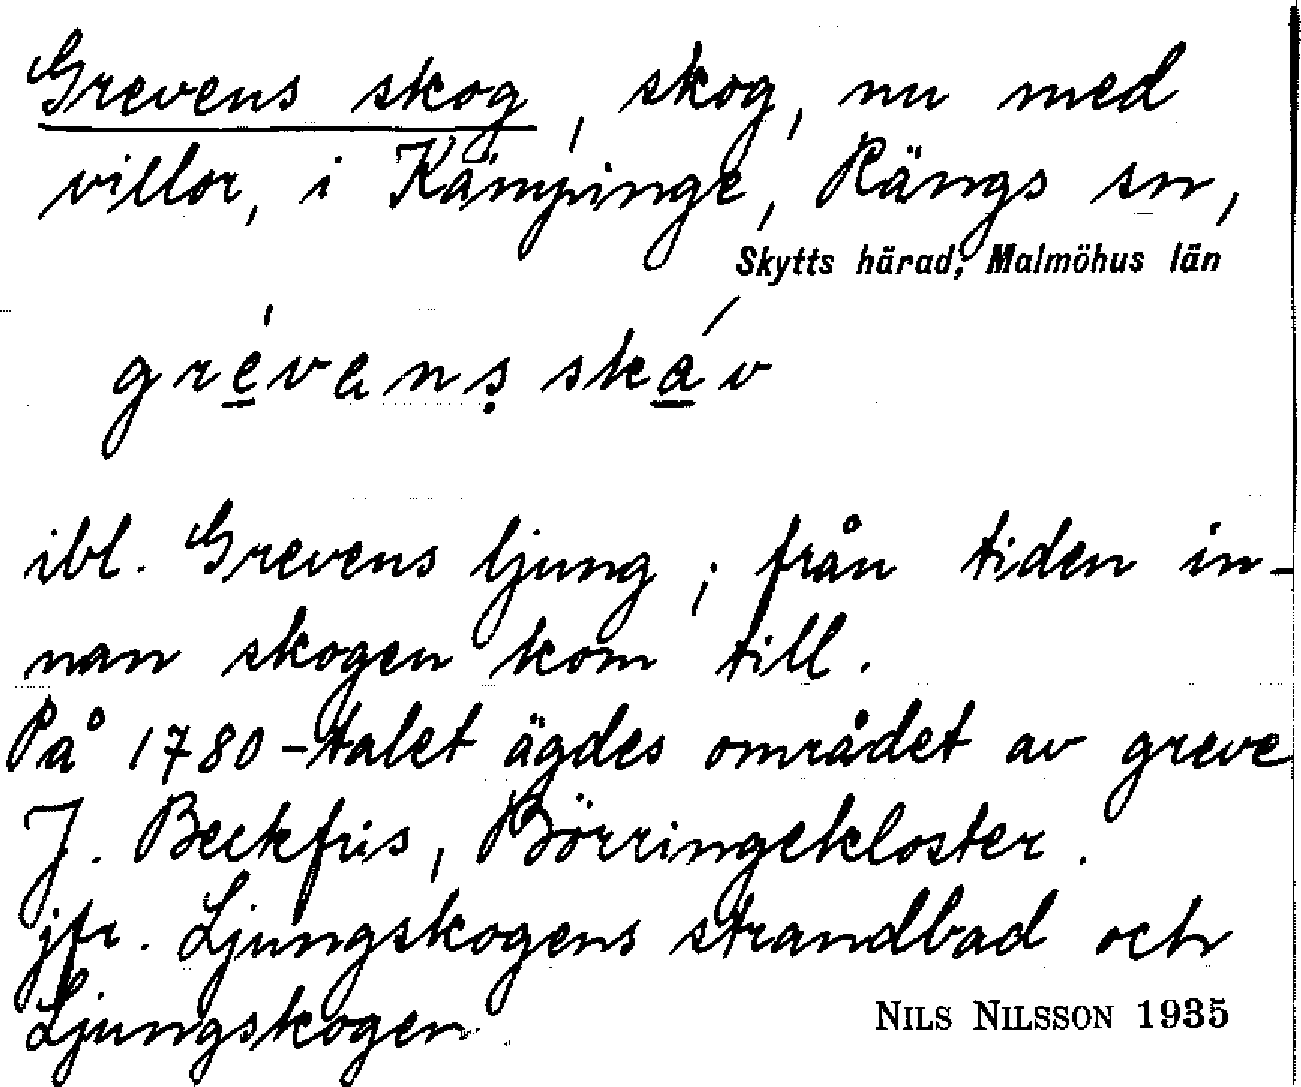 Grevens skog, skog, nu med
villor, i Kämpinge, Rängs sn,
Skytts härad, Malmöhus län
grévens skáv
ibl. Grevens ljung; från tiden in-
nan skogen kom till.
På 1780-talet ägdes området av greve
J. Beckfris, Börringekloster.
jfr. Ljungskogens strandbad och
Ljungskogen
NILS NILSSON 1935